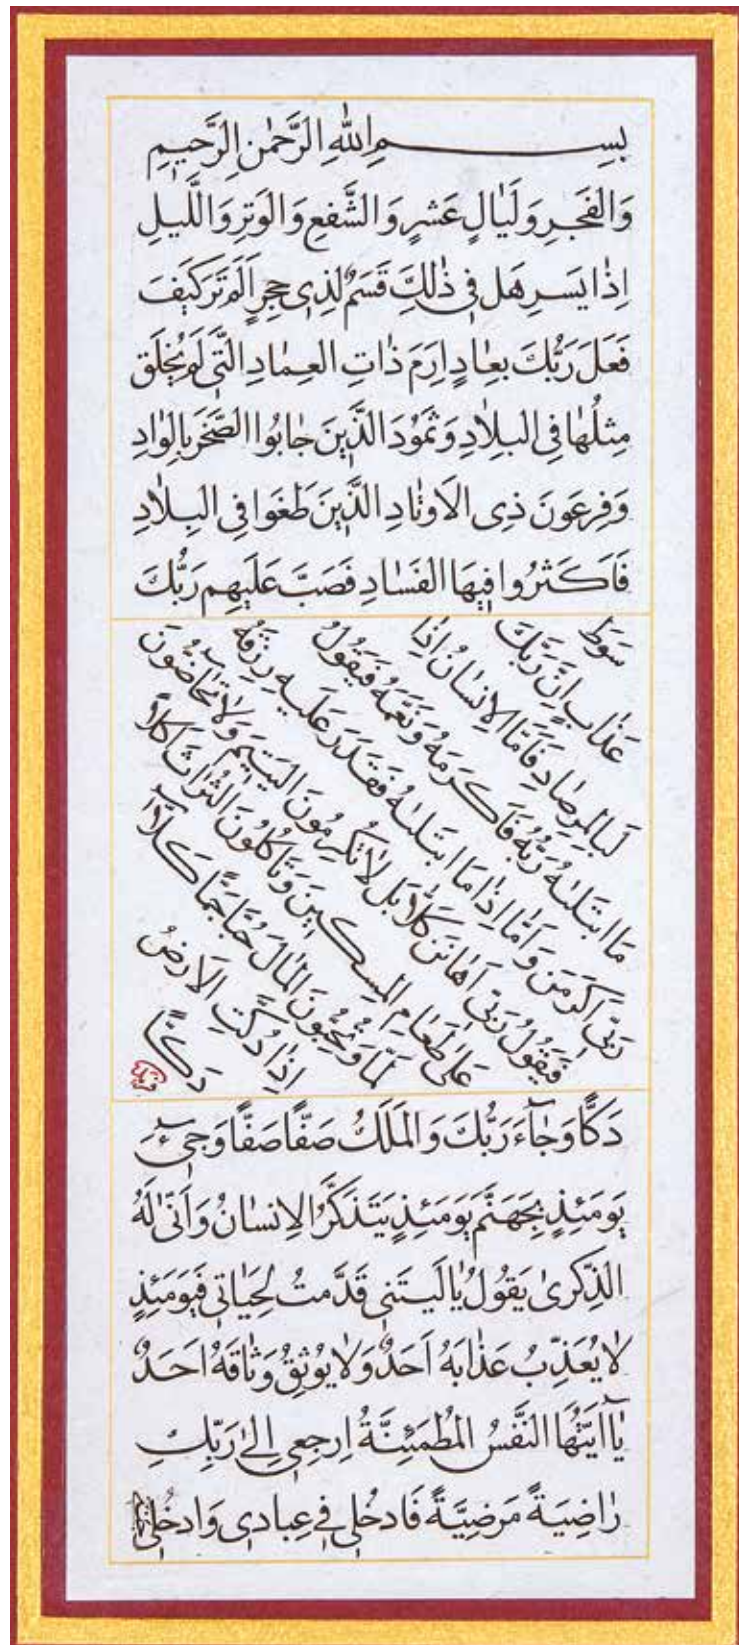 بِسْمِ اللّٰهِ الرَّحْمٰنِ الرَّحيمِ
وَالفَجرِ وَلَيٰالٍ عَشرٍ وَالشَّفعِ وَالوَترِ وَاللَّيلِ
اِذٰا يَسرِ هَل فى ذٰلِكَ قَسَمٌ لِذى حِجرٍ اَلَم تَرَ كَيفَ
فَعَلَ رَبُّكَ بِعٰادٍ اِرَمَ ذٰاتِ العِمٰادِ الَّتى لَم يُخلَق
مِثلُهٰا فِى البِلٰادِ وَثَمُودَ الَّذينَ جٰابُوا الصَّخرَ بِالوٰادِ
وَفِرعَونَ ذِى الاَوتٰادِ الَّذينَ طَغَوا فِى البِلٰادِ
فَاَكثَرُوا فيهَا الفَسٰادِ فَصَبَّ عَلَيهِم رَبُّكَ
سَوطَ
عَذٰابٍ اِنَّ رَبَّكَ
لَبِالمِرصٰادِ فَاَمَّا الاِنسٰانُ اِذٰا
مَا ابتَلٰىهُ رَبُّهُ فَاَكرَمَهُ وَنَعَّمَهُ فَيَقُولُ
رَبّى اَكرَمَنِ وَاَمّٰا اِذٰا مَا ابتَلٰىهُ فَقَدَرَ عَلَيهِ رِزقَهُ
فَيَقُولُ رَبّى اَهٰانَنِ كَلّٰا بَل لٰا تُكرِمُونَ اليَتيمَ وَلٰا تَحٰاضُّونَ
عَلىٰ طَعٰامِ المِسكينِ وَتَأكُلُونَ التُّرٰاثَ اَكلاً
لَمّاً وَتُحِبُّونَ المٰالَ حُبّاً جَمّاً كَلّٰا
اِذٰا دُكَّتِ الاَرضُ
دَكّاً
دَكّاً وَجٰآءَ رَبُّكَ وَالمَلَكُ صَفّاً صَفّاً وَجىٓءَ
يَومَئِذٍ بِجَهَنَّمَ يَومَئِذٍ يَتَذَكَّرُ الاِنسٰانُ وَاَنّٰى لَهُ
الذِّكرىٰ يَقُولُ يٰا لَيتَنى قَدَّمتُ لِحَيٰاتى فَيَومَئِذٍ
لٰا يُعَذِّبُ عَذٰابَهُ اَحَدٌ وَلٰا يُوثِقُ وَثٰاقَهُ اَحَدٌ
يٰآ اَيَّتُهَا النَّفسُ المُطمَئِنَّةُ اِرجِعى اِلىٰ رَبِّكِ
رٰاضِيَةً مَرضِيَّةً فَادخُلى فى عِبادى وَادخُلى